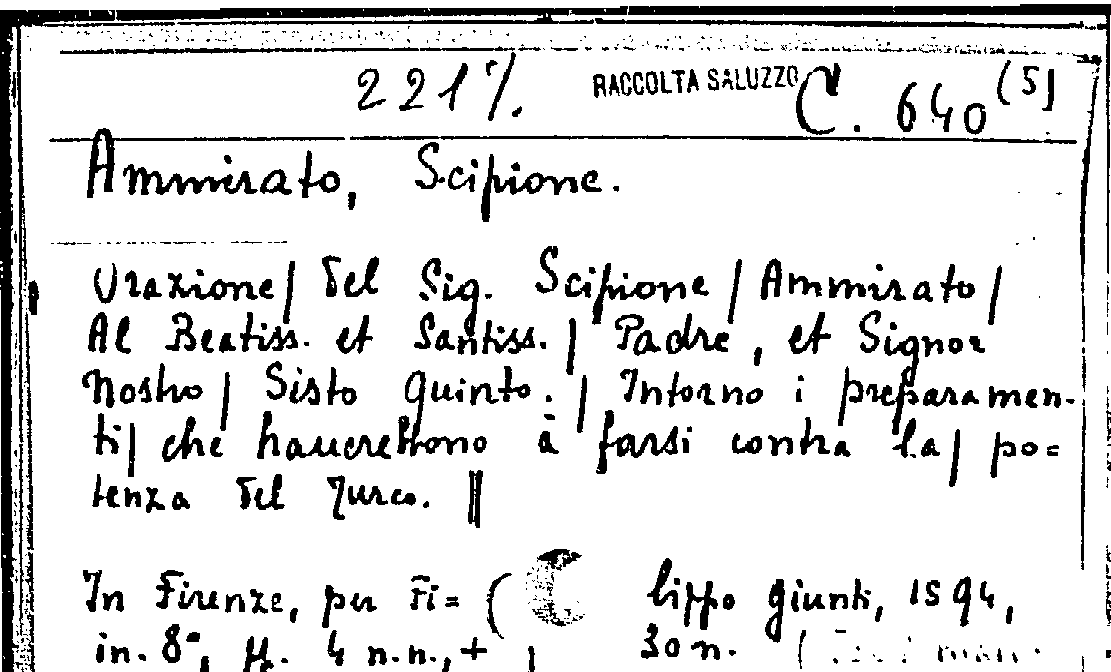 2217. RACCOLTA SALUZZO C. 640 (5)
Ammirato, Scipione.
Orazione/ del Sig. Scipione / Ammirato /
Al Beatiss. et Santiss. / Padre, et Signor
Nostro / Sisto Quinto. / Intorno i preparamen-
ti/ che haurebbono à farsi contra la/ po=
tenza del Turco. ||
In Firenze, per Fi= ( lippo Giunti, 1594,
in. 8°, ff. 4 n.n., + 30 n.